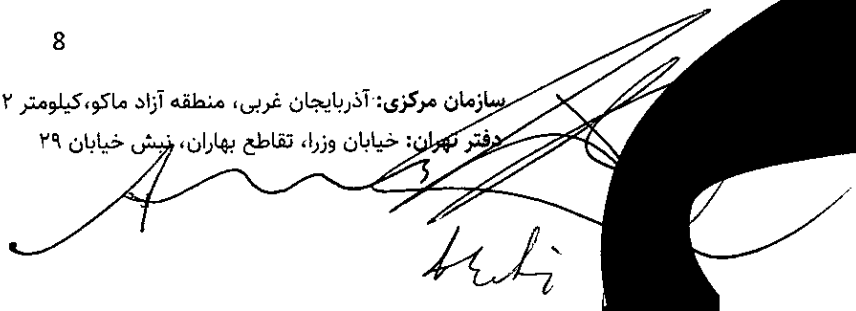 8
سازمان مرکزی: آذربایجان غربی، منطقه آزاد ماکو،کیلومتر ۲
دفتر تهران: خیابان وزرا، تقاطع بهاران، نبش خیابان ۲۹